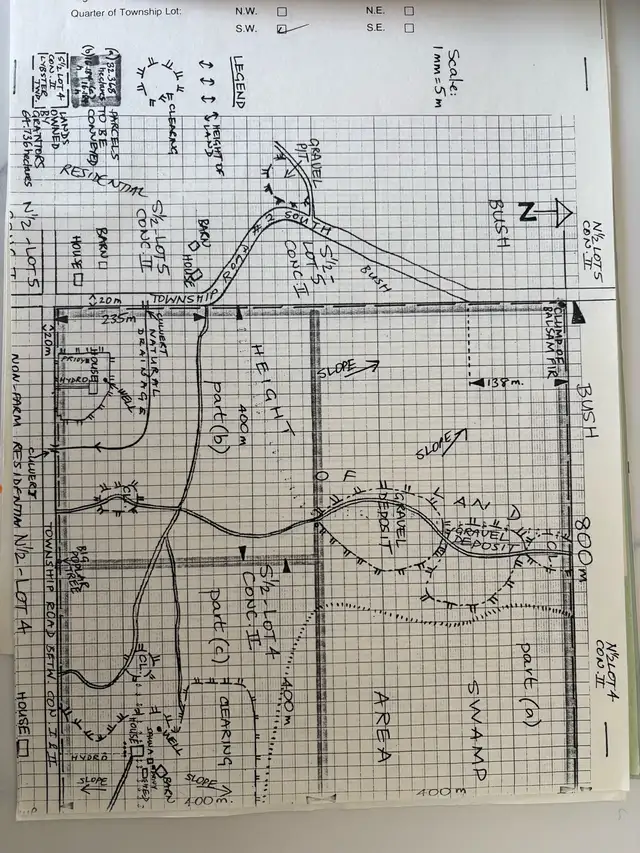 Quarter of Township Lot:
N.W.
N.E.
S.W.
S.E.
Scale:
1mm = 5m
LEGEND
HEIGHT OF
LAND
CLEARING
PARCELS
TO BE
CONVEYED
(a)
(b)
S/2 LOT 4
CON. II
LYBSTER TWP.
LANDS
OWNED
BY
GRANTORS
RESIDENTIAL
N/2 - LOT 5
S/2 - LOT 5
CONC - II
BARN
HOUSE
BARN
HOUSE
GRAVEL
PIT
#2 SOUTH
S/2 -
LOT 5
CONC II
BUSH
BUSH
N
N/2 LOT 5
CON. II
TOWNSHIP
20m
235m
20m
CULVERT
NATURAL
DRAINAGE
HOUSE
HYDRO
WELL
HEIGHT
OF
LAND
400m
part (b)
SLOPE
SLOPE
138m.
CLUMP OF
BALSAM FIR
BUSH
800m
GRAVEL
DEPOSIT
GRAVEL
DEPOSIT
CL
CL
NON-FARM RESIDENTIAL
CULVERT
N/2 - LOT 4
TOWNSHIP ROAD BETW CON I & II
BIG
POPLAR
TREE
S/2 - LOT 4
CONC - II
part (c)
400m
CLEARING
part (a)
SWAMP
AREA
N/2 LOT 4
CON II
CL
HOUSE
WELL
SAUNA
BARN
SHED
HYDRO
SLOPE
SLOPE
400m
400m
HOUSE